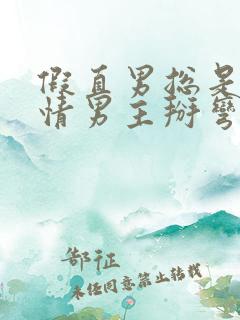 假直男总是
情男主掰弯
郜征
未经同意禁止转载